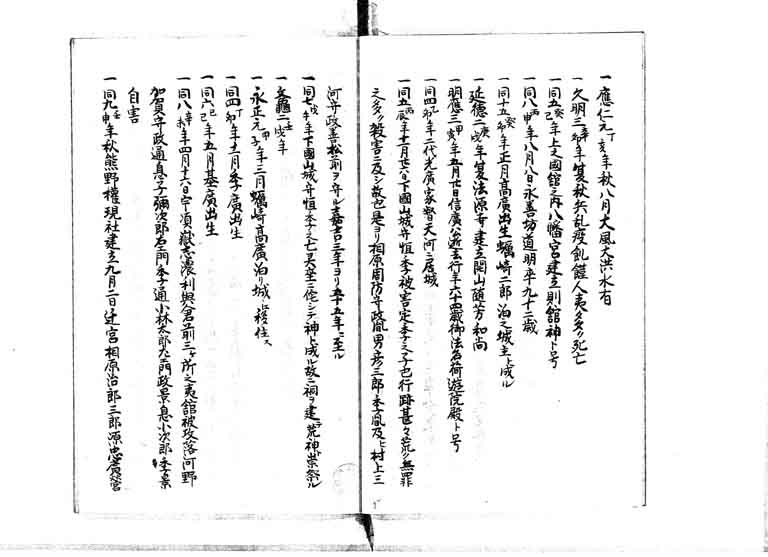 一應仁元丁亥年秋八月大風大洪水有
一文明三辛卯年夏秋兵乱疫飢饉人夷多クシ死亡
一同五癸巳年上之國館之内八幡宮建立則館神ト号
一同八丙申年八月八日永善坊道明卒九十二歳
一同十五癸卯年正月高廣出生蠣崎二郎泊之城主ト成ル
一延徳二庚戌年夏法源寺建立開山随芳和尚
一明應三甲寅年五月廿日信廣公逝去行年六十四歳御法名荷遊院殿ト号
一同四乙卯年二代光廣家督天河ニ居城
一同五丙辰年十一月廿六日下國山城守恒季被害定季之子也行跡甚々荒クシ無罪
之多クシ殺害ニ及シ故也是ヨリ相原周防守政胤男彦三郎季胤及ヒ村上三
河守政善松前ヲ守ル嘉吉三年ヨリ五十五年ニ至ル
一同七戊午年下國山城守恒季之亡㚑至ニ佗シテ神ト成ル故ニ祠ヲ建テ荒神ト崇祭ル
一文龜二壬戌年
一永正元甲子年三月蠣崎高廣泊リ城ヒ移住ス
一同四丁卯年十一月季廣出生
一同六己巳年五月基廣出生
一同八辛未年四月十六日宇須嶽志濃利與倉前三ヶ所之夷館被攻落河野
加賀守政通息子彌次郎右エ門季通小林太郎左エ門政景息小次郎季景
自害
一同九壬申年秋熊野權現社建立九月二日迁宮相原治郎三郎源忠廣營